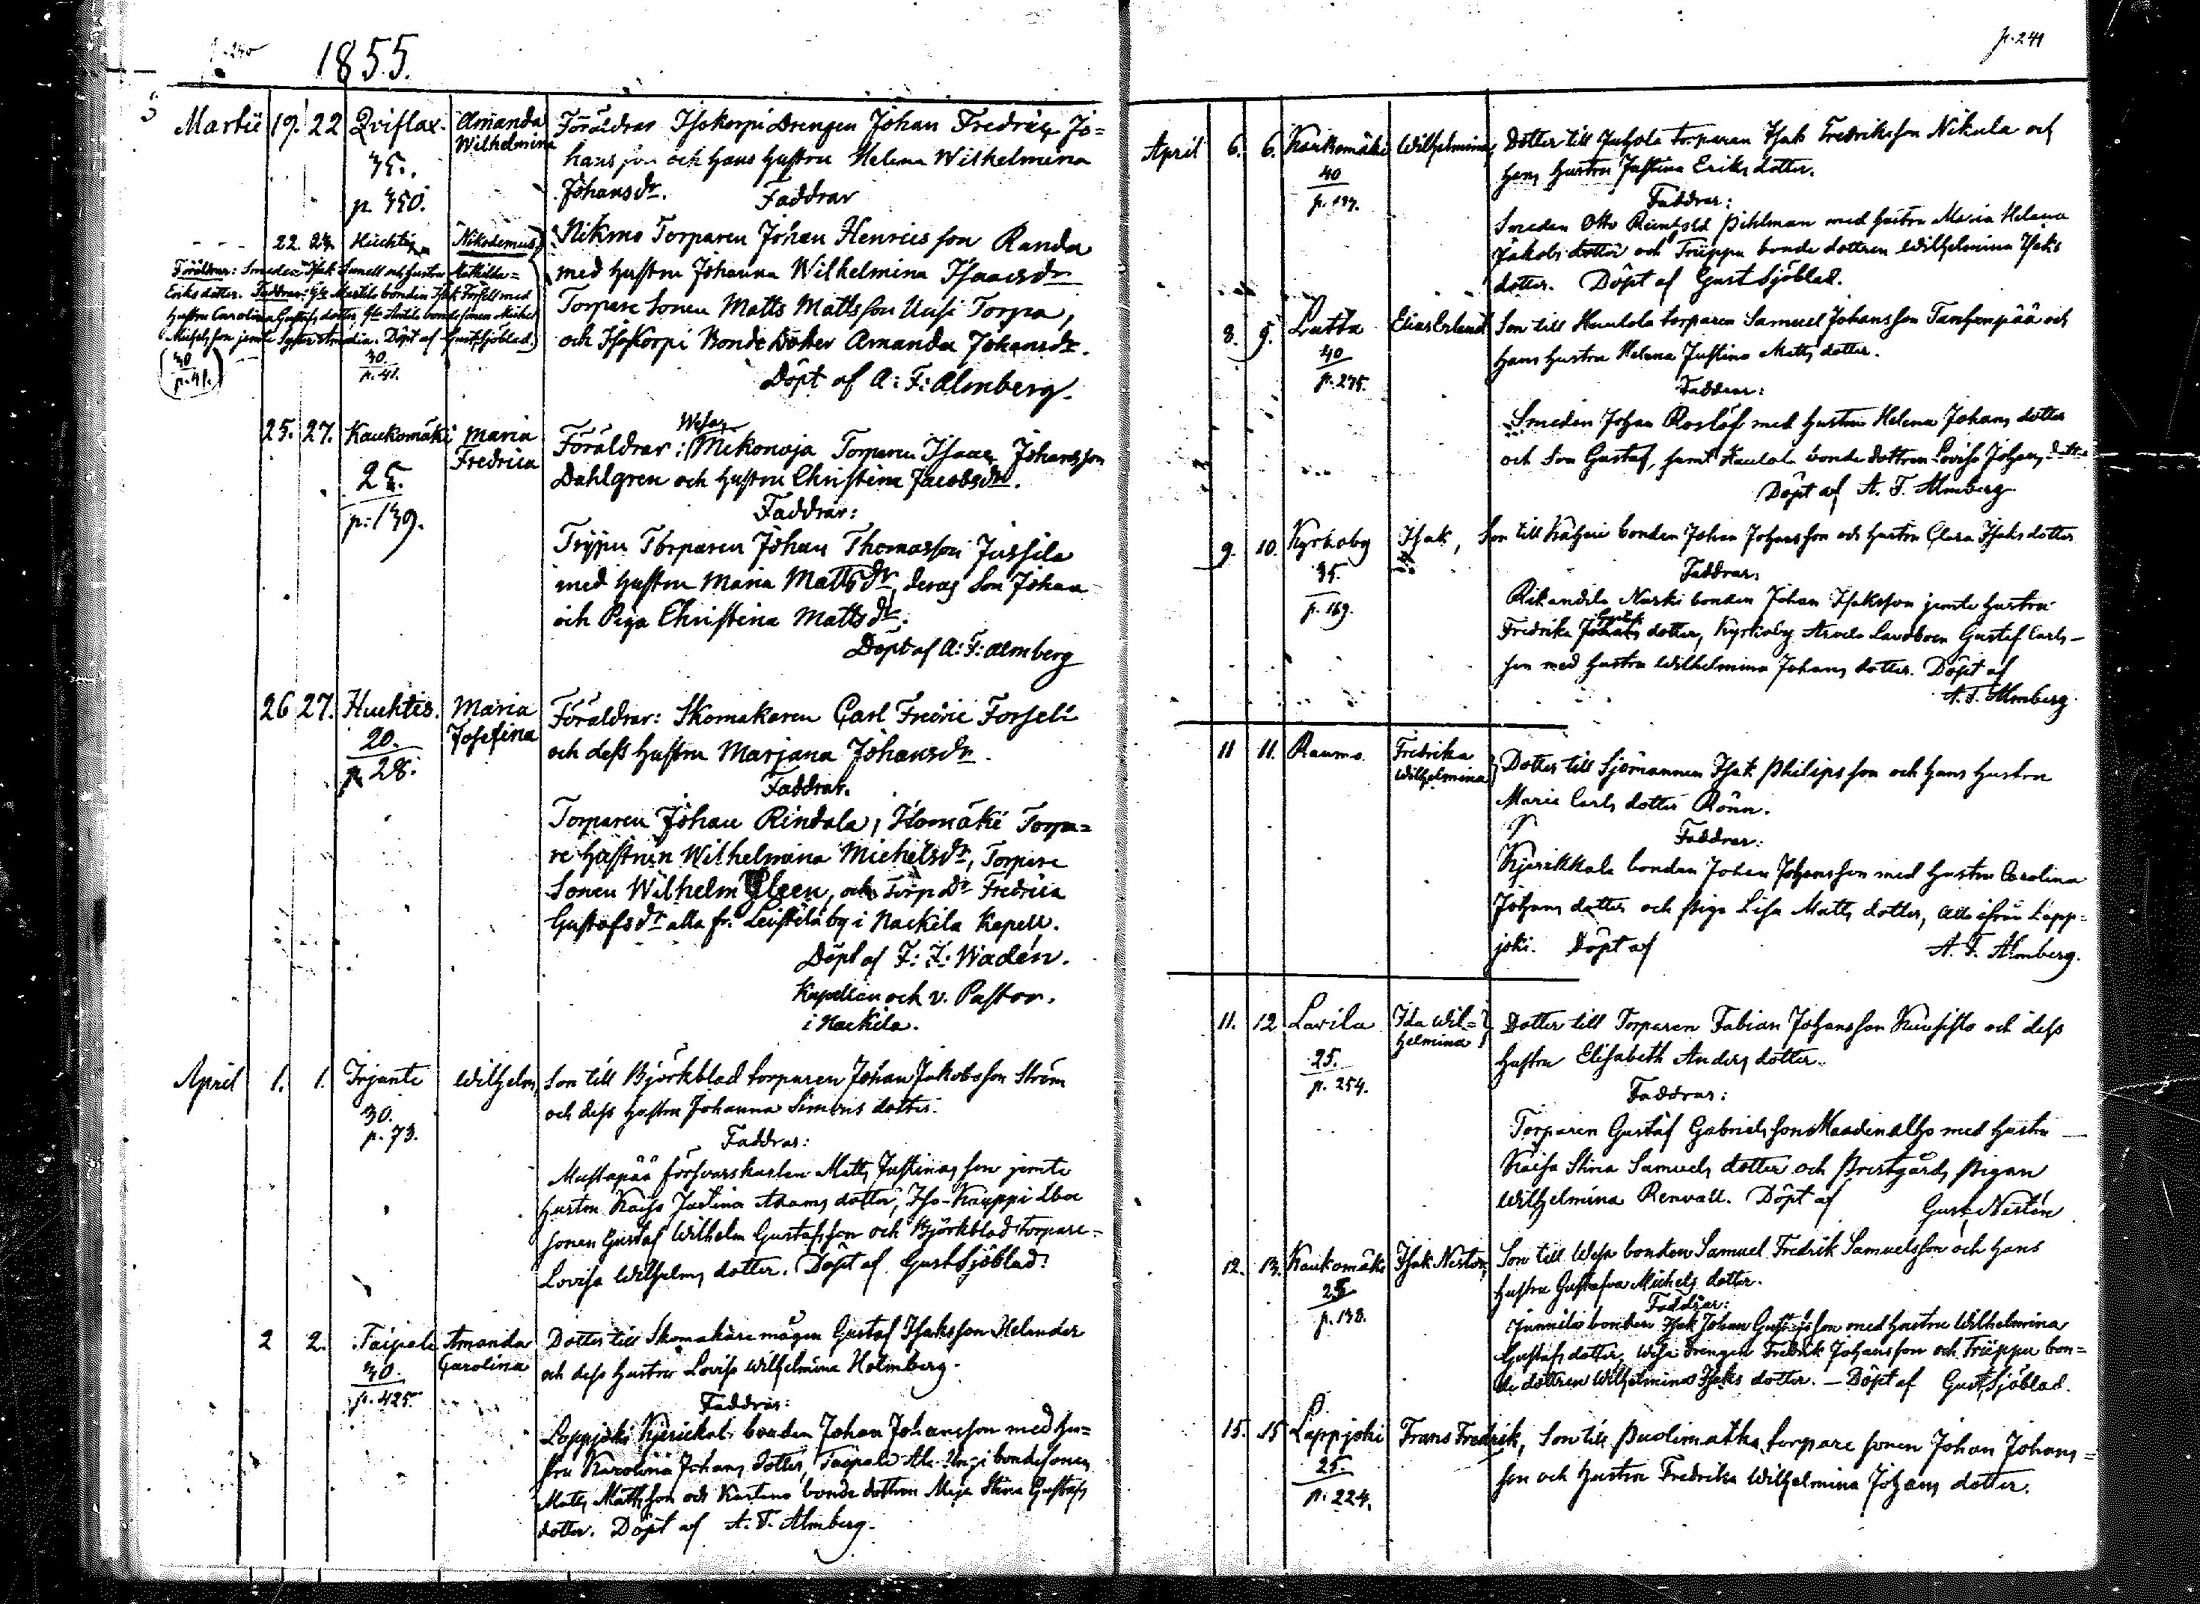 1855.
Martii 19. 22 Qviflax. Amanda Wilhelmina
Föräldrar Isokorpi Drengen Johan Fredric Jo=
hansson och hans hustru Helena Wilhelmina
Johansdr. Faddrar
45.
p. 450.
Nikmo Torparen Johan Henricsson Randa
med hustru Johanna Wilhelmina Isaacsdr
Torpare Sonen Matts Mattsson Uusi Torpa,
och Isokorpi Bonde Dotter Amanda Johansdr.
Döpt af A: F: Almberg.
22. 27. Huchtis Nikodemus,
Föräldrar: Smeden Isak Sanell och hustru Mathilda
Eriks dotter. Faddrar: Yli Mattila bonden Isak Forsell med
hustru Carolina Gustafs dotter, bondesonen Michel
Michelsson jemte syster Amalia. Döpt af Gust. Sjöblad.
30
p. 41.
25. 27. Kaukomäki Maria Fredrica
25.
p. 139.
Föräldrar: Wesa Mekonoja Torparen Isaac Johansson
Dahlgren och hustru Christina Jacobsdr.
Faddrar:
Trypu Torparen Johan Thomasson Jussila
med hustru Maria Mattsdr, deras Son Johan
och Piga Christina Mattsdr.
Döpt af A: F: Almberg
26 27. Huchtis. Maria Josefina
20.
p. 28.
Föräldrar: Skomakaren Carl Fredric Forsell
och dess hustru Marjana Johansdr.
Faddrar.
Torparen Johan Rindala, Ilomäki Torpa=
re hustrun Wilhelmina Michelsdr, Torpare
Sonen Wilhelm Ylgen, och Torp Dr Fredrica
Gustafsdr alla fr. Leistilä by i Nackila Kapell.
Döpt af F: F: Wadén.
Kapellan och v. Pastor.
i Nackila.
April 1. 1. Irjante Wilhelm,
30.
p. 73.
Son till Björkblad torparen Johan Jakobsson Ström
och dess hustru Johanna Simons dotter.
Faddrar:
Mustapää försvarskarlen Matts Justinasson jemte
hustru Kaisa Justina Adams dotter, Iso-Kauppi åbo
sonen Gustaf Wilhelm Gustafsson och Björkblad torpare-
Lovisa Wilhelms dotter. Döpt af Gust Sjöblad.
2 2. Taipale Amanda Carolina
30.
p. 425.
Dotter till Skomakare mågen Gustaf Isaksson Helander
och dess hustru Lovisa Wilhelmina Holmberg.
Faddrar:
Lappjoki Kjerickal. bonden Johan Johansson med hu=
stru Karolina Johans dotter, Taipale Ala-Ungi bondesonen
Matts Mattsson och Kustana bonde dottren Maja Stina Gustafs
dotter. Döpt af A. F. Almberg.
p. 241
April 6. 6. Kaukomäki Wilhelmina,
40
Dotter till Juhola torparen Isak Fredriksson Nikula och
hans hustru Justina Eriks dotter.
Faddrar:
Smeden Otto Reinhold Pihlman med hustru Maria Helena
Jakobs dotter och Trüppu bonde dottren Wilhelmina Isaks
dotter. Döpt af Gust Sjöblad.
8. 9. Lutta Elias Erland
40
p. 275.
Son till Haulola torparen Samuel Johansson Tanhuanpää och
hans hustru Helena Justina Matts dotter.
Faddrar:
Smeden Johan Roslöf med hustru Helena Johans dotter
och Son Gustaf samt Haulola bonde dottren Lovisa Johans dotter
Döpt af A. F. Almberg
9. 10 Kyrkoby Isak,
35.
p. 169.
Son till Kähäri bonden Johan Johansson och hustru Clara Isaks dotter
Faddrar:
Rikandila Narki bonden Johan Isaksson jemte hustru
Fredrika Johans dotter, Kyrkoby Arvela Landboen Gustaf Carls-
son med hustru Wilhelmina Johans dotter. Döpt af
A. F. Almberg.
11 11. Raumo Fredrika Wilhelmina
Dotter till Sjömannen Isak Philipsson och hans hustru
Maria Carls dotter Rönn.
Faddrar:
Kjerikkala bonden Johan Johansson med hustru Carolina
Johans dotter och piga Lisa Matts dotter, alla ifrån Lapp=
joki. Döpt af A. F. Almberg.
11. 12 Lavila Ida Wil=helmina
25.
p. 254.
Dotter till Torparen Fabian Johansson Kuusisto och dess
hustru Elisabeth Anders dotter.
Faddrar:
Torparen Gustaf Gabrielsson Maadenalho med hustru
Kaisa Stina Samuels dotter och Prestgårds pigan
Wilhelmina Renvall. Döpt af Gust. Nestén
12. 13. Kaukomäki Isak Nestor,
25
p. 138.
Son till Wesa bonden Samuel Fredrik Samuelsson och hans
hustru Gustafva Michels dotter.
Faddrar:
Junnila bonden Isak Johan Gustafsson med hustru Wilhelmina
Gustafs dotter, Wesa Drengen Fredrik Johansson och Trüppu bon=
de dottren Wilhelmina Isaks dotter. – Döpt af Gust. Sjöblad.
15. 15 Lappjoki Frans Fredrik,
25.
p. 224.
Son till Puolimatka torpare sonen Johan Johans=
son och hustru Fredrika Wilhelmina Johans dotter.